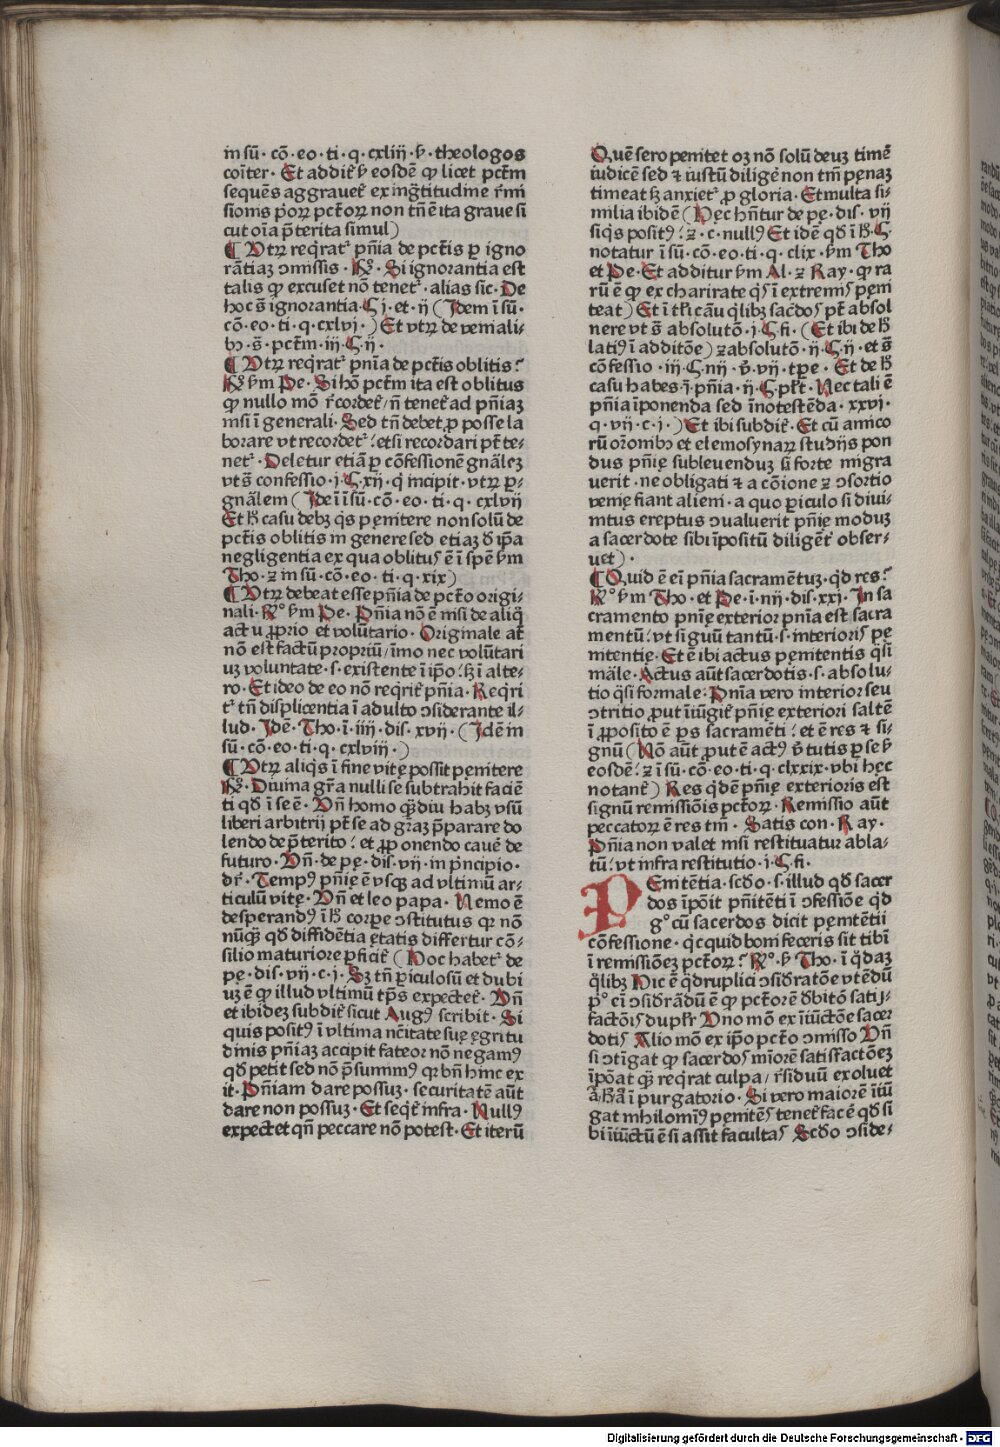 in sū· cō· eo· ti· q· cxliiij· ẜ· theologos
coīter· Et addit᷑ ẜ eosdē ꝙ licet pctm̄
sequēs aggrauet᷑ ex ingͣtitudine r̄mi
sionis pͥorꝝ pctorꝝ non tn̄ ē ita graue si
cut oīa p̄terita simul)
¶ Vtrꝝ reqͥrat᷑ pn̄ia de pctīs ꝑ igno
rātiaꝫ ↄmissis· ℞º· Si ignorantia est
talis ꝙ excuset nō tenet᷑· alias sic· De
hoc s̄ ignorantia· §· j· et· ij (Idem ī sū·
cō· eo· ti· q· cxlvj·) Et vtrꝝ de veniali-
bꝰ· s̄· pctm̄· iij· §· ij·
¶ Vtrꝝ reqͥrat᷑ pn̄ia de pctīs oblitis?
℞º ẜm Pe· Si hō pctm̄ ita est oblitus
ꝙ nullo mō r̄cordet᷑/ n̄ tenet᷑ ad pn̄iaꝫ
nisi ī generali· Sed tn̄ debet ꝓ posse la
borare vt recordet᷑! etsi recordari pt̄ te-
net᷑· Deletur etiā ꝑ cōfessionē gnālēꝫ
vt s̄ confessio· j· §· xij· qͥ incipit· vtrꝝ ꝑ-
gnālem (Idē ī ī sū· cō· eo· ti· q· cxlvij
Et ħ casu debꝫ qͥs penitere non solū de
pctīs oblitis in genere sed etiaꝫ d̄ ip̄a
negligentia ex qua oblitꝰ ē ī spē ẜm
Tho· ⁊ in sū· cō· eo· ti· q· xix)
¶ Vtrꝝ debeat esse pn̄ia de pctō origi-
nali· ℞º ẜm Pe· Pn̄ia nō ē nisi de aliqͦ
actu ꝓprio et volūtario· Originale at̄
nō est factū propriū/ īmo nec volūtari
uꝫ voluntate· s· existente ī ip̄o! sꝫ ī alte-
ro· Et ideo de eo nō reqͥrit᷑ pn̄ia· Reqͥri
t᷑ tn̄ displicentia ī adulto ↄsiderante il-
lud· Idē· Tho· ī· iiij· dis· xvij· (Idē in
sū· cō· eo· ti· q· cxlviij·)
¶ Vtrꝝ aliqͥs ī fine vitę possit penitere
℞º· Diuina gr̄a nulli se subtrahit faciē
ti qd̄ ī se ē· Vn̄ homo qͣdiu habꝫ vsū
liberi arbitrij pt̄ se ad gr̄aꝫ p̄parare do
lendo de p̄terito! et ꝓponendo cauē de
futuro· Vn̄· de pę· dis· vij· in pͥncipio·
dr̄· Tempꝰ pn̄ię ē vsqꝫ ad vltimū ar-
ticulū vitę· Vn̄ et leo papa· Nemo ē
desperandꝰ ī ħ corpe ↄstitutus qꝛ nō
nūqͣꝫ qd̄ diffidētia ętatis differtur cō-
silio maturiore ꝑficit᷑ (Hoc habet᷑ de
pę· dis· vij· c· j· Sꝫ tn̄ ꝑiculosū et dubi
uꝫ ē ꝙ illud vltimū tp̄s expectet᷑· Vn̄
et ibideꝫ subdit᷑ sicut Augꝰ scribit· Si
quis positꝰ ī vltima nc̄itate suę ęgritu
dinis pn̄iaꝫ accipit fateor nō negamꝰ
qd̄ petit sed nō p̄sumimꝰ qꝛ bn̄ hinc ex
it· Pn̄iam dare possuꝫ· securitatē aūt
dare non possuꝫ· Et seqͥt᷑ infra· Nullꝰ
expectet qn̄ peccare nō potest· Et iterū
Quē sero penitet oꝫ nō solū deuꝫ timē
iudicē sed ⁊ iustū diligē non tm̄ penaꝫ
timeat sꝫ anxiet᷑ ꝓ gloria· Et multa si-
milia ibidē (Hęc hn̄tur de pę· dis· vij
siqͥs positꝰ! ⁊· c· nullꝰ Et idē qd̄ ī ħ· §·
notatur ī sū· cō· eo· ti· q· clix· ẜm Tho
et Pe· Et additur ẜm Al· ⁊ Ray· ꝙ ra
rū ē ꝙ ex charirate qͥs ī extremis peni
teat) Et ī tli cāu qͥlibꝫ sacdos pt̄ absol
uere vt s̄ absolutō· j· §· fi· (Et ibi de ħ
latiꝰ ī additōe) ⁊ absolutō· ij· §· ij· et s̄
cōfessio· iij· §· nij· ꝟ· vij· tꝑe· Et de ħ
casu habes ī· pn̄ia· ij· §· pl̄t· Nec tali ē
pn̄ia īponenda sed īnotescēda· xxvj·
q· vij· c· j·) Et ibi subdit᷑· Et cū amico
rū or̄onibꝰ et elemosynarꝝ studijs pon
dus pn̄ię subleuenduꝫ si forte migra
uerit· ne obligati ⁊ a cōione ⁊ ↄsortio
venię fiant alieni· a quo ꝑiculo si diui-
nitus ereptus ↄualuerit pn̄ię moduꝫ
a sacerdote sibi īpositū diligēt᷑ obser-
uet)·
¶ Quid ē eī pn̄ia sacramētuꝫ· qͥd res?
℞º ẜm Tho· et Pe· ī· iiij· dis· xxj· In sa
cramento pn̄ię exterior pn̄ia est sacra
mentū! vt signū tantū· s· interioris pę
nitentię· Et ē ibi actus pęnitentis qͣsi
māle· Actus aūt sacerdotis· s· absolu-
tio qͣsi formale· Pn̄ia vero interior seu
ↄtritio ꝓut īiūgit᷑ pn̄ię exteriori saltē
ī ꝓposito ē ꝑs sacramēti! et ē res ⁊ si-
gnū (Nō aūt ꝓut ē actꝰ ꝟtutis ꝑ se ẜ
eosdē! ⁊ ī sū· cō· eo· ti· q· clxxix· vbi hęc
notant᷑) Res qͥdē pn̄ię exterioris est
signū remissiōis pctorꝝ· Remissio aūt
peccatorꝝ ē res tm̄· Satis con· Ray·
Pn̄ia non valet nisi restituatur abla-
tū! vt infra restitutio· j· §· fi·
PEnitētia· scd̄o· s· illud qd̄ sacer
dos īpōit pn̄itēti ī ↄfessiōe qͥd
gº cū sacerdos dicit pęnitētii
cōfessione· qͥcquid boni feceris sit tibi
ī remissiōeꝫ pctorꝝ? ℞º· ẜ Tho· ī qͦdaꝫ
qͦlibꝫ Hic ē qͥdruplici ↄsid̄ratōe vtēdū
pº eī ↄsid̄rādū ē ꝙ pctorē d̄bitō satis-
factōis dupl̄r Vno mō ex īiūctōe sacer
dotis Alio mō ex ip̄o pctō ↄmisso Vn̄
si ↄtīgat ꝙ sacerdos miorē satisfactōeꝫ
īpōat qͣꝫ reqͥrat culpa/ r̄siduū exoluet
ī purgatorio· Si vero maiorē īiū
gat nihilominꝰ pęnitēs tenet᷑ facē qd̄ si
bi īiūctū ē si assit facultas Scd̄o ↄside-
Digitalisierung gefördert durch die Deutsche Forschungsgemeinschaft - DFG